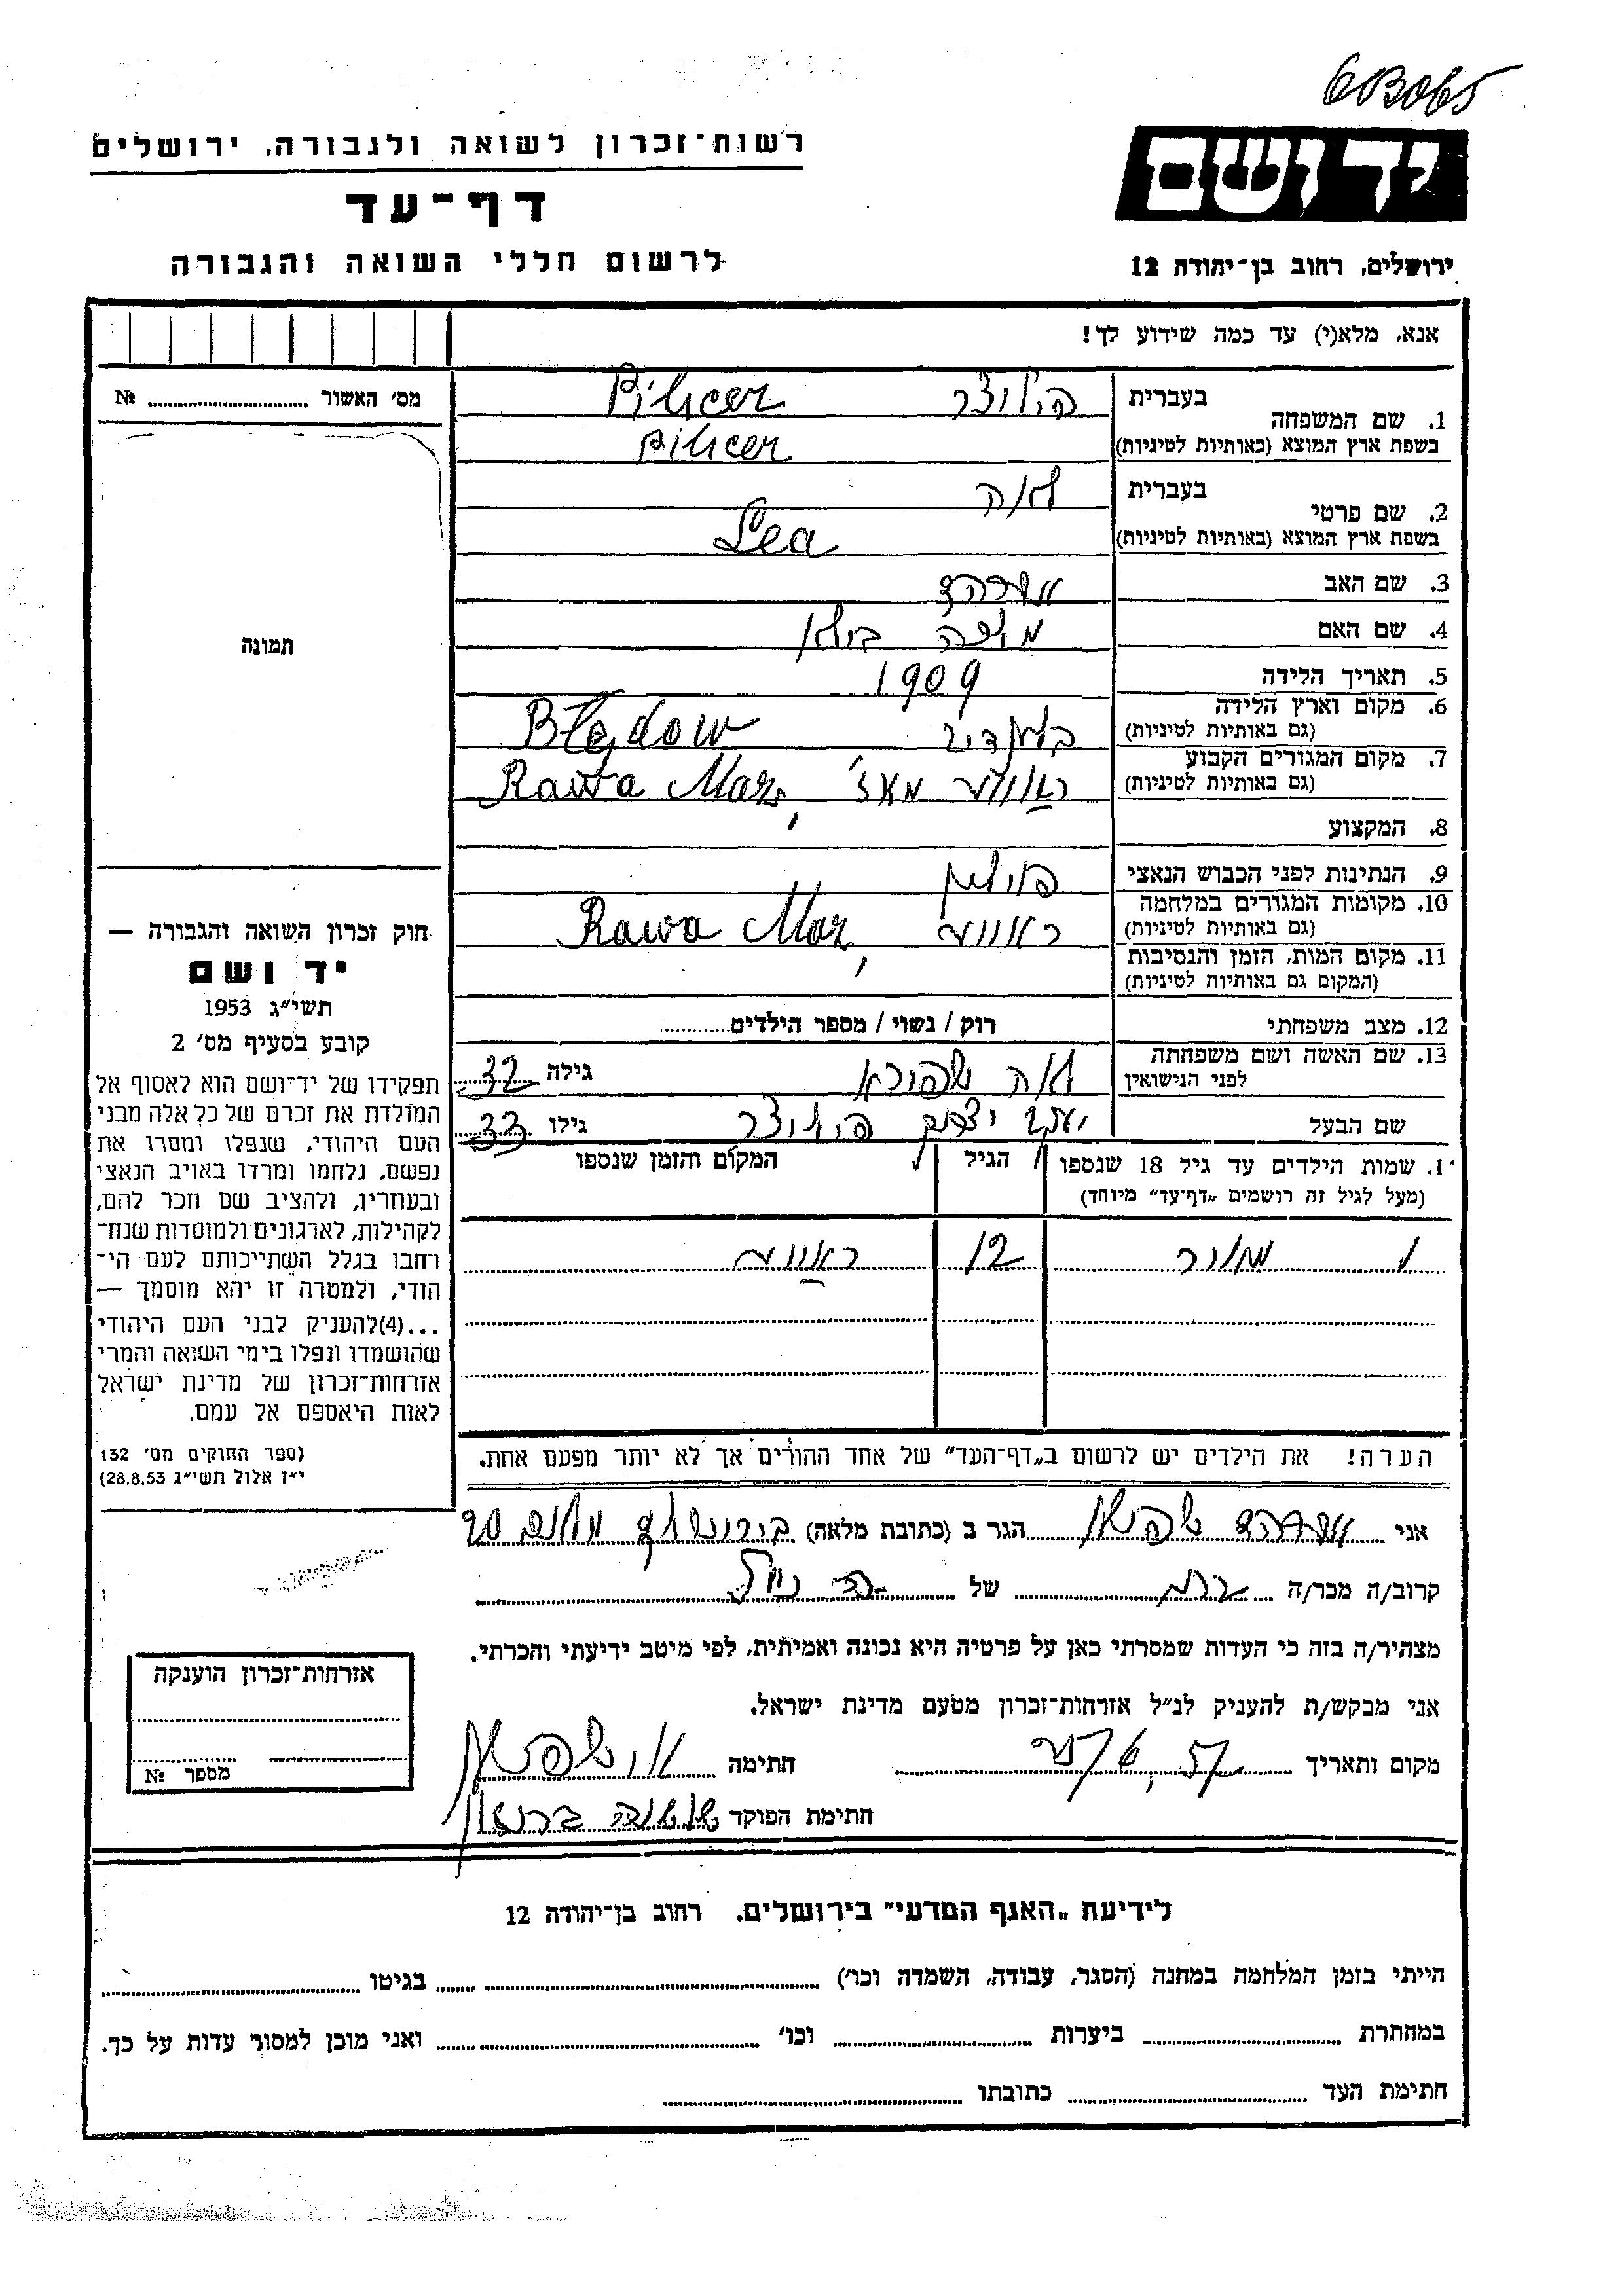 6B065
רשות־זכרון לשואה ולגבורה, ירושלים
יד ושם
דף־עד
לרשום חללי השואה והגבורה
ירושלים, רחוב בן־יהודה 12
אנא, מלא(י) עד כמה שידוע לך!
מס׳ האשור ........ №
1. שם המשפחה בעברית פילוצר Pilicer
בשפת ארץ המוצא (באותיות לטיניות) Pilicer
2. שם פרטי בעברית לאה
בשפת ארץ המוצא (באותיות לטיניות) Lea
3. שם האב
4. שם האם
5. תאריך הלידה 1909
6. מקום וארץ הלידה
(גם באותיות לטיניות) Błędow
7. מקום המגורים הקבוע
(גם באותיות לטיניות) ראווע מאז׳ Rawa Maz,
8. המקצוע
9. הנתינות לפני הכבוש הנאצי פולין
10. מקומות המגורים במלחמה
(גם באותיות לטיניות) ראווע Rawa Maz,
11. מקום המות, הזמן והנסיבות
(המקום גם באותיות לטיניות)
12. מצב משפחתי רוק / נשוי / מספר הילדים........
13. שם האשה ושם משפחתה
לפני הנישואין לאה שפירא גילה 32
שם הבעל יעקב יצחק פילוצר גילו 33
תמונה
חוק זכרון השואה והגבורה —
יד ושם
תשי״ג 1953
קובע בסעיף מס׳ 2
תפקידו של יד־ושם הוא לאסוף אל
המולדת את זכרם של כל אלה מבני
העם היהודי, שנפלו ומסרו את
נפשם, נלחמו ומרדו באויב הנאצי
ובעוזריו, ולהציב שם וזכר להם,
לקהילות, לארגונים ולמוסדות שנח־
רחבו בגלל השתייכותם לעם הי־
הודי, ולמטרה זו יהא מוסמך —
...(4)להעניק לבני העם היהודי
שהושמדו ונפלו בימי השואה והמרי
אזרחות־זכרון של מדינת ישראל
לאות היאספם אל עמם.
(ספר החוקים מס׳ 132
י״ז אלול תשי״ג 28.8.53)
1. שמות הילדים עד גיל 18 שנספו הגיל המקום והזמן שנספו
(מעל לגיל זה רושמים „דף־עד״ מיוחד)
1 מאיר 12 ראווע
הערה! את הילדים יש לרשום ב„דף־העד״ של אחד ההורים אך לא יותר מפעם אחת.
אני שפירא הגר ב (כתובת מלאה)
קרוב/ה מכר/ה של
מצהיר/ה בזה כי העדות שמסרתי כאן על פרטיה היא נכונה ואמיתית, לפי מיטב ידיעתי והכרתי.
אני מבקש/ת להעניק לנ״ל אזרחות־זכרון מטעם מדינת ישראל.
מקום ותאריך חתימה
חתימת הפוקד
אזרחות־זכרון הוענקה
מספר №
לידיעת „האגף המדעי״ בירושלים. רחוב בן־יהודה 12
הייתי בזמן המלחמה במחנה (הסגר, עבודה, השמדה וכו׳) ........ בגיטו ........
במחתרת ........ ביערות ........ וכו׳ ........ ואני מוכן למסור עדות על כך.
חתימת העד ........ כתובתו ........